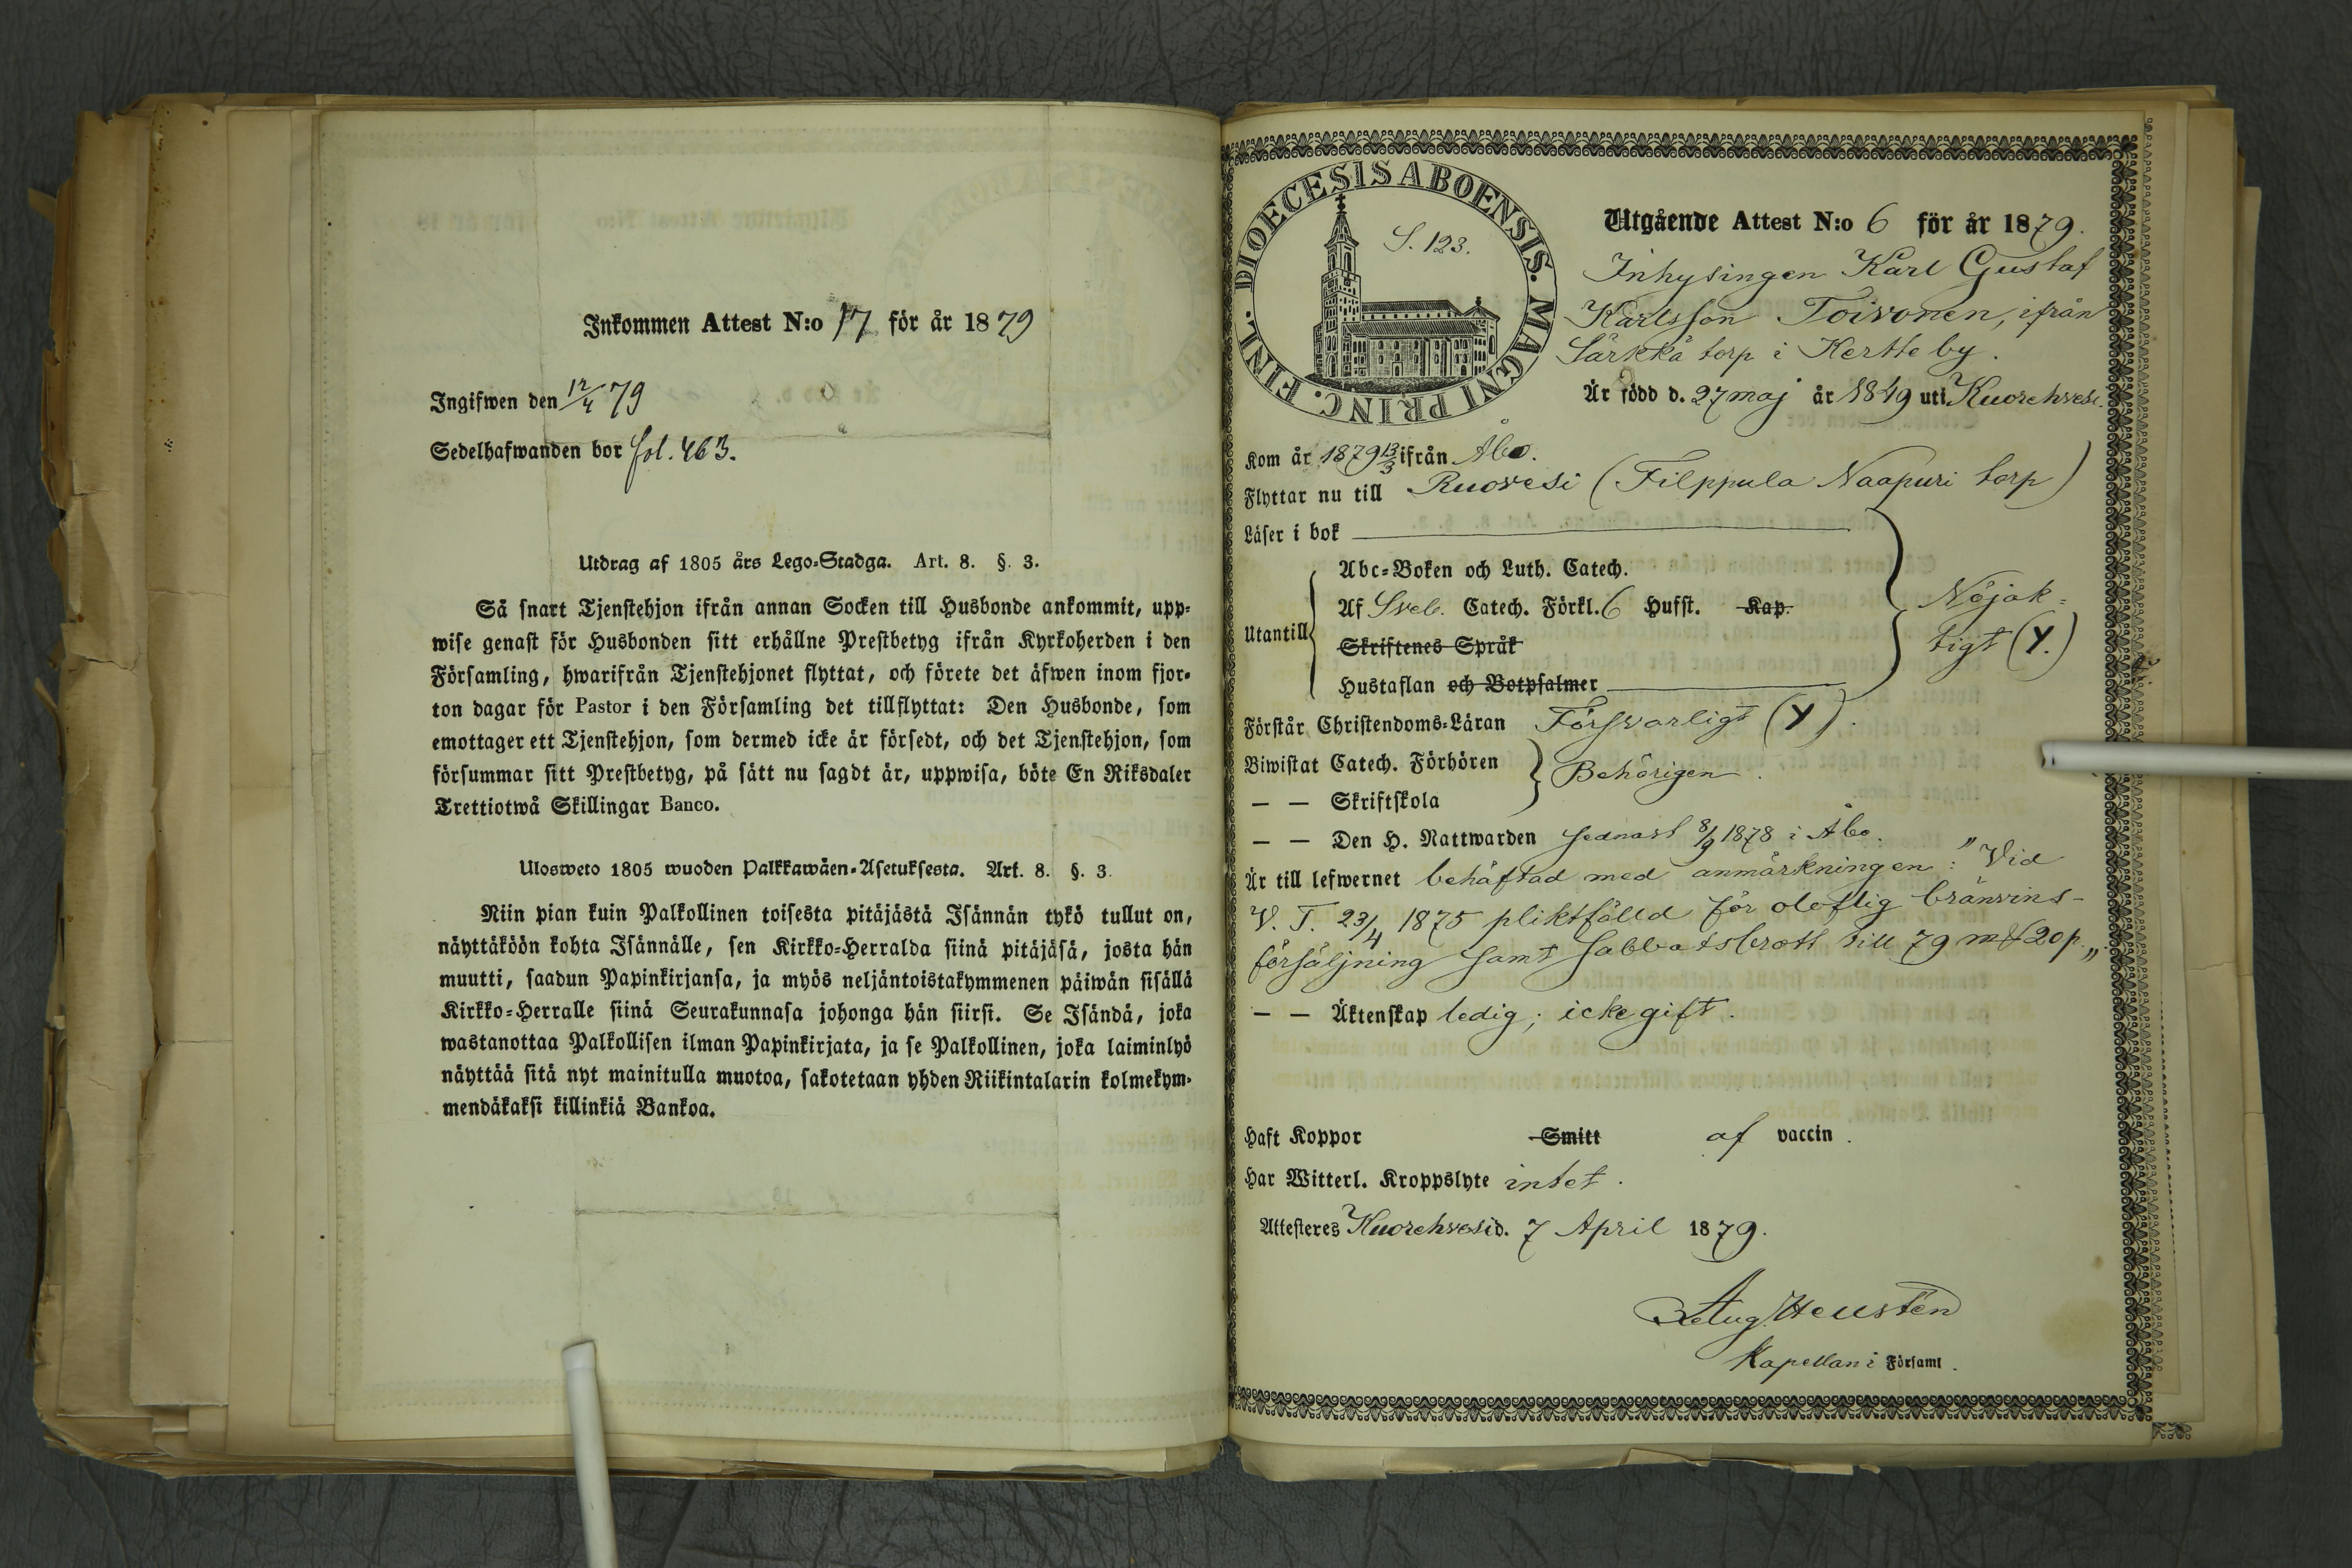 Inkommen Attest N:o 17 för år 1879
Ingifwen den 12/4 79
Sedelhafwanden bor fol. 463.
Utdrag af 1805 års Lego-Stadga. Art. 8. §. 3.
Så snart Tjenstehjon ifrån annan Socken till Husbonde ankommit, upp-
wise genast för Husbonden sitt erhållne Prestbetyg ifrån Kyrkoherden i den
Församling, hwarifrån Tjenstehjonet flyttat, och förete det äfwen inom fjor-
ton dagar för Pastor i den Församling det tillflyttat: Den Husbonde, som
emottager ett Tjenstehjon, som dermed icke är försedt, och det Tjenstehjon, som
försummar sitt Prestbetyg, på sätt nu sagdt är, uppwisa, böte En Riksdaler
Trettiotwå Skillingar Banco.
Ulosweto 1805 wuoden Palkkawäen-Asetuksesta. Art. 8. §. 3.
Niin pian kuin Palkollinen toisesta pitäjästä Isännän tykö tullut on,
näyttäköön kohta Isännälle, sen Kirkko-Herralda siinä pitäjäsä, josta hän
muutti, saadun Papinkirjansa, ja myös neljäntoistakymmenen päiwän sisällä
Kirkko-Herralle siinä Seurakunnasa johonga hän siirsi. Se Isändä, joka
wastanottaa Palkollisen ilman Papinkirjata, ja se Palkollinen, joka laiminlyö
näyttää sitä nyt mainitulla muotoa, sakotetaan yhden Riikintalarin kolmekym-
mendäkaksi killinkiä Bankoa.
DIOECESIS ABOENSIS. MAGNI PRINC. FINL.
S. 123.
Utgående Attest N:o 6 för år 1879.
Inhysingen Karl Gustaf
Karlsson Toivonen, ifrån
Särkkä torp i Kertte by.
Är född d. 27 maj år 1849 uti Kuorehvesi.
Kom år 1879 13/3 ifrån Åbo.
Flyttar nu till Ruovesi (Filppula Naapuri torp)
Läser i bok
Abc-Boken och Luth. Catech.
Af Sveb. Catech. Förkl. 6 Hufst. Kap.
Utantill
Skriftenes Språk
Hustaflan och Botpsalmer
Nöjak-
tigt (Y.)
Förstår Christendoms-Läran Försvarligt (Y).
Biwistat Catech. Förhören
Behörigen.
— — Skriftskola
— — Den H. Nattwarden sednast 8/9 1878 i Åbo.
Är till lefwernet behäftad med anmärkningen: "Vid
V. T. 23/4 1875 pliktfälld för oloflig bränvins-
försäljning samt sabbatsbrott till 79 mk 20 p."
— — Äktenskap ledig; icke gift.
Haft Koppor Smitt af vaccin.
Har Witterl. Kroppslyte intet.
Attesteres Kuorehvesi d. 7 April 1879.
Aug. Heusten
Kapellan i Församl.